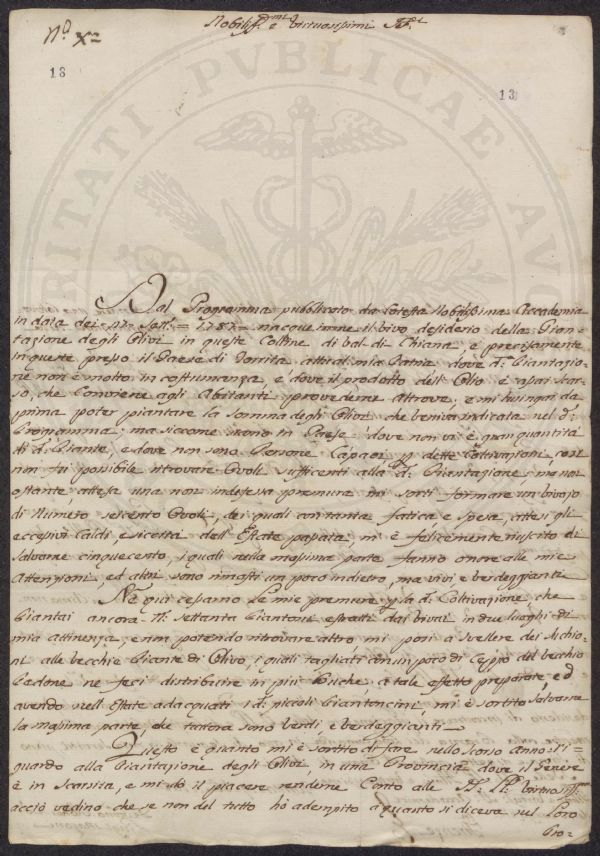 N.º X.mo
Nobiliss.mi e Virtuosissimi SS.ri
13
13
PROSPERITATI PUBLICAE AU
Dal Programma pubblicato da Cotesta Nobilissima Accademia
in data dei 1787 nacque in me il vivo desiderio della Pian-
tazione degli Olivi in queste Colline di Val di Chiana, e precisamente
in queste presso il Paese di Torrita attual mia Patria dove d.a Piantazio-
ne non è molto in costumanza, e dove il prodotto dell'Olio è assai scar-
so, che Conviene agli Abitanti provederne Altrove; e mi lusingai da
prima poter piantare la Somma degli Olivi che veniva indicata nel d.o
Programma; ma siccome sono in Paese dove non va è gran quantità
di d.e Piante, e dove non sono Persone Capaci p. dette Coltivazioni, così
non fu possibile ritrovare Ovoli sufficenti alla d.a Piantazione; ma non
ostante attesa una non indefessa premura mi sortì formare un Vivajo
di Numero seicento Ovoli, dei quali con tanta fatica, e spesa, attesi gli
eccessivi Caldi, e siccità dell'Estate passata, mi è felicemente riuscito di
Salvarne cinquecento, i quali nella massima parte fanno onore alle mie
Attenzioni, ed altri sono rimasti un poco indietro, ma vivi e verdeggianti.
Nè qui cessarno le mie premure p. la d.a Coltivazione, che
Piantai ancora N.º Settanta Piantoni estratti dai Vivai in due luoghi di
mia attinenza, e non potendo ritrovare altro, mi posi a Svellere dei
alle vecchie Piante di Olivo, i quali tagliati con un poco di Ceppo del vecchio
Pedone ne feci distribuire in più Buche a tale effetto preparate, ed
avendo nell'Estate adacquati i d.i piccoli Piantoncini, mi è sortito Salvarne
la massima parte, che tuttora sono verdi, e verdeggianti.
Questo è quanto mi è sortito di fare nello scorso anno ri-
guardo alla Piantazione degli Olivi, in una Provincia dove il Genere
è in Scarsità, e mi dò il piacere renderne Conto alle SS. LL. Virtuosiss.me
acciò vedino che se non del tutto hò adempito a quanto si diceva nel Loro
Pro=